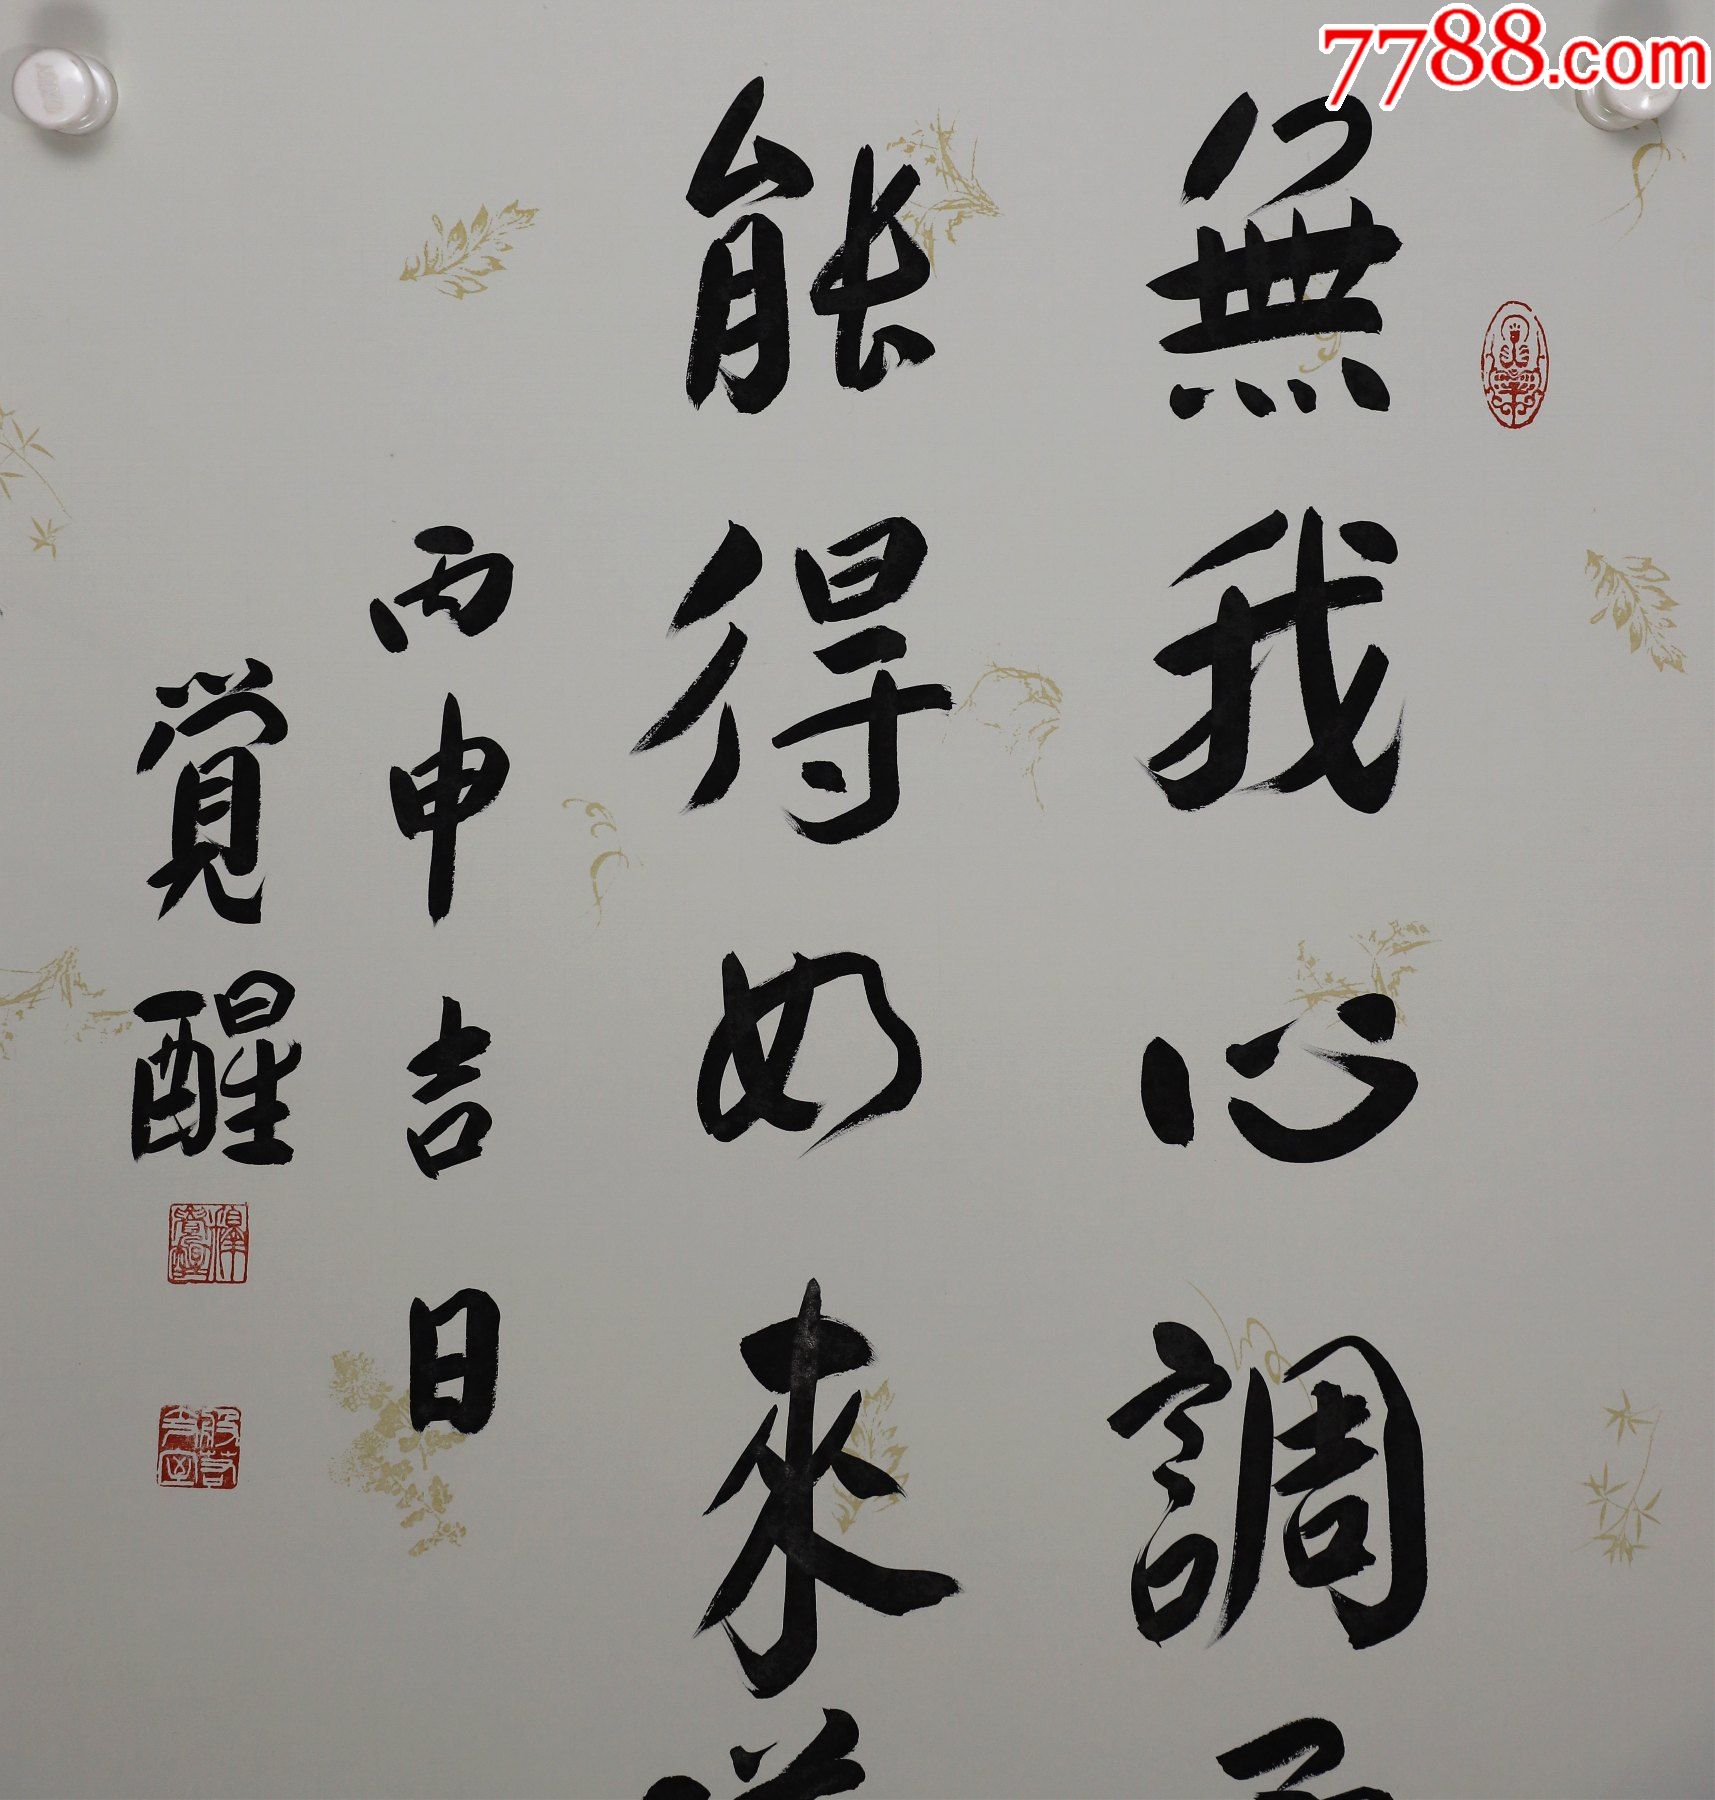 7788.com
無我心調
能得如來
丙申吉日
覺醒